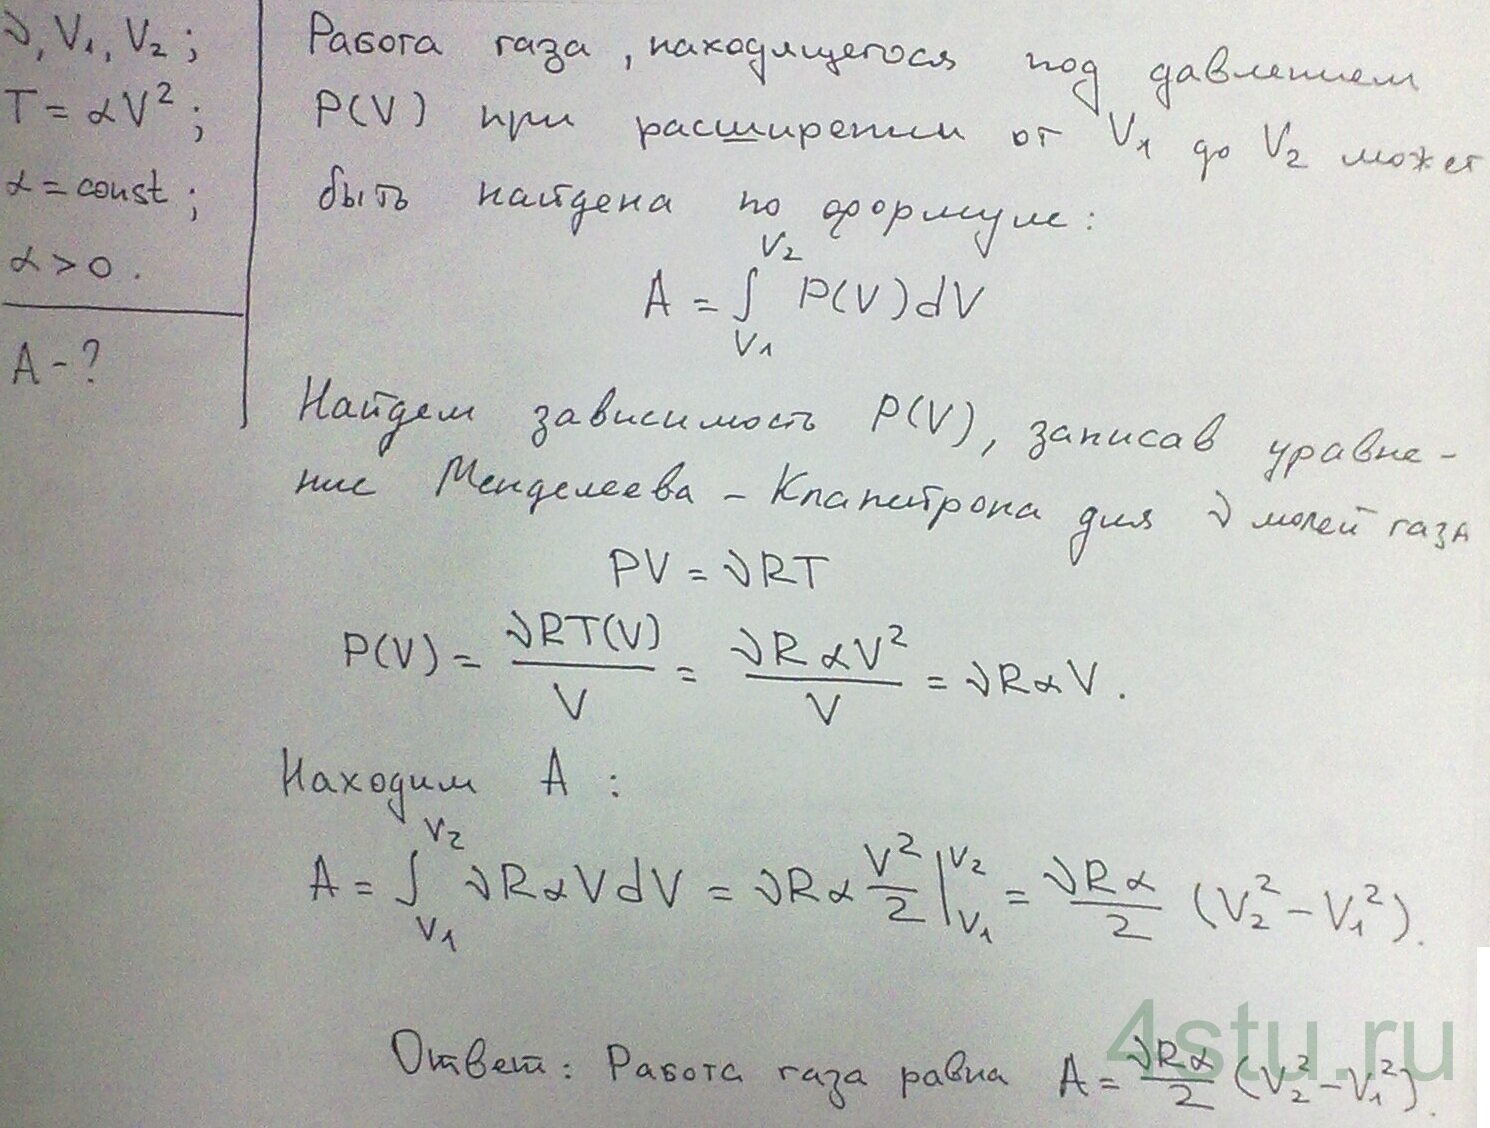 ν, V₁, V₂ ;
T = αV² ;
α = const ;
α > 0 .
A - ?
Работа газа, находящегося под давлением
P(V) при расширении от V₁ до V₂ может
быть найдена по формуле:
A = ∫_{V₁}^{V₂} P(V)dV
Найдем зависимость P(V), записав уравне-
ние Менделеева - Клапейтрона для ν молей газа
PV = νRT
P(V) = νRT(V)/V = νRαV²/V = νRαV .
Находим A :
A = ∫_{V₁}^{V₂} νRαVdV = νRα V²/2 |_{V₁}^{V₂} = νRα/2 (V₂² - V₁²).
Ответ: Работа газа равна A = νRα/2 (V₂² - V₁²).
4stu.ru